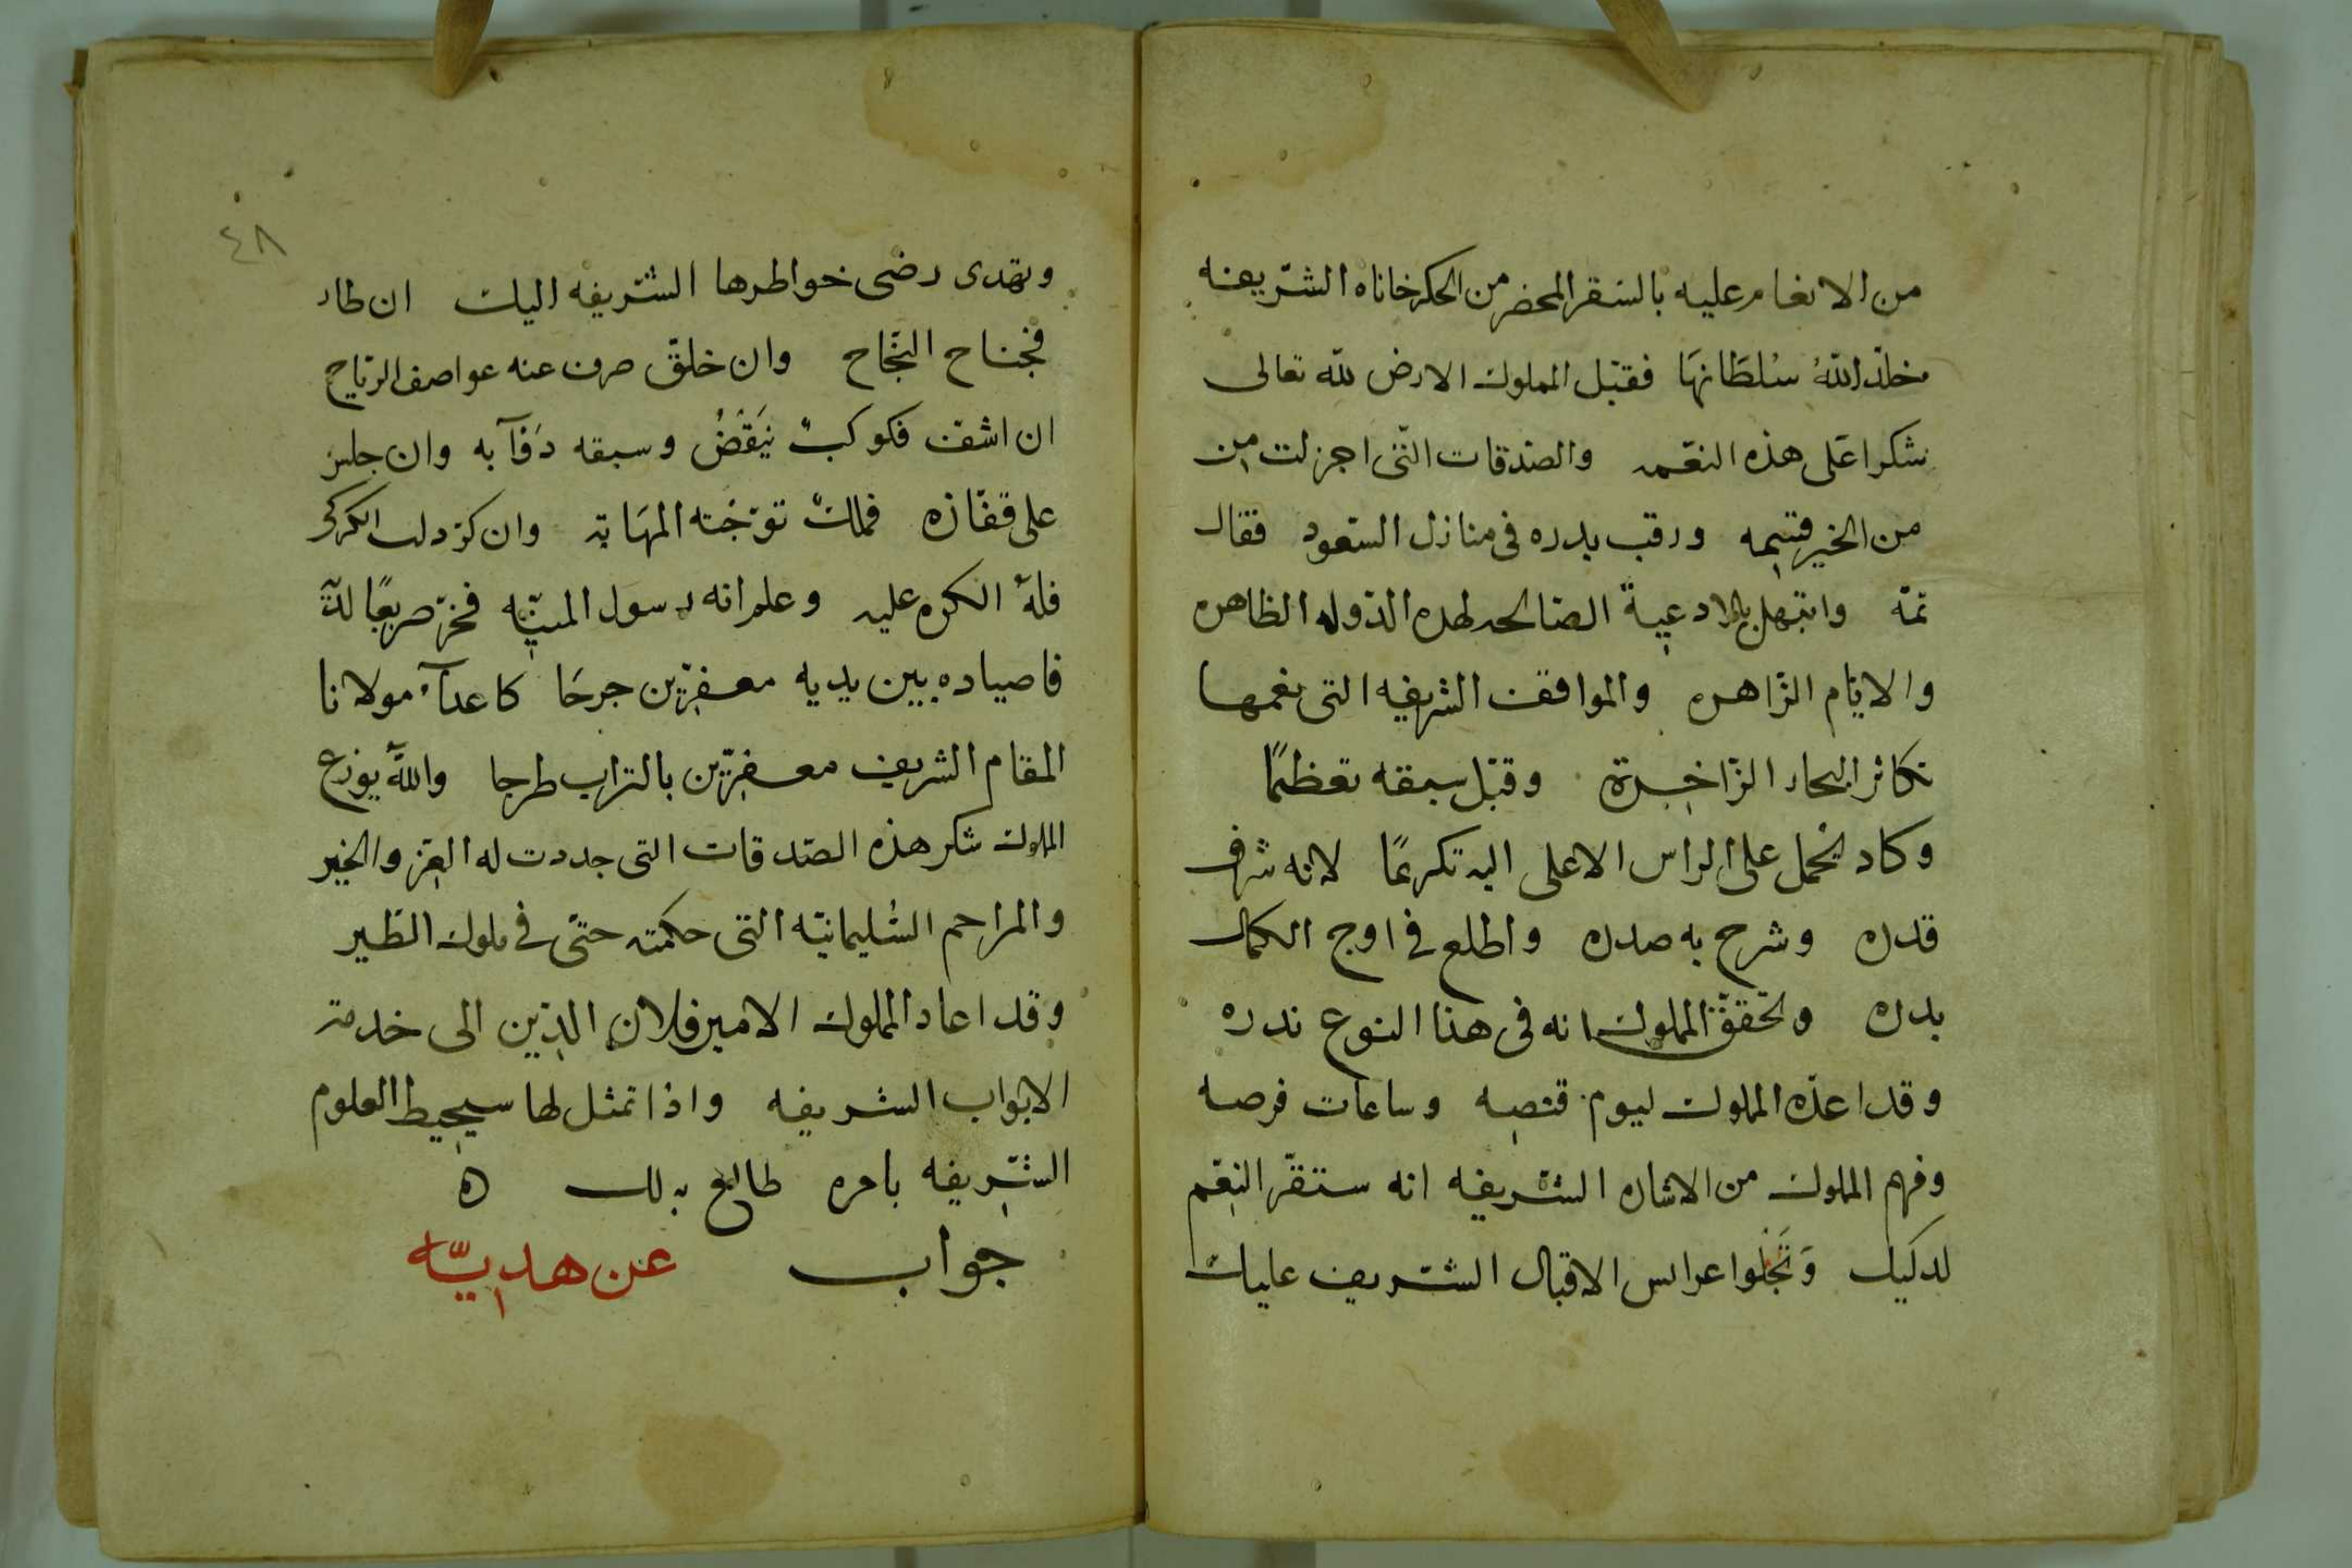 من الانعام عليه بالسنقر المحضر من الحكرخاناه الشريفه
خلد اللهُ سُلطَانهَا فقبل المملوك الارض لله تعالى
شكرا عَلى هذه النعمه والصدقات التى اجزلت من
من الخير قسمه ورقب بدره فى منازل السعود فقال
تمّه وابتهل بالادعية الصالحه لهذه الدوله الظاهره
والايام الزاهره والمواقف الشريفه التى نعمها
تكاثر البحار الزاخرة وقبّل سبقه تعظيمًا
وكاد يحمل على الراس الاعلى اليه تكريمًا لانه شرف
قدره وشرح به صدره واطلع فى اوج الكمال
بدره وتحقق المملوك انه فى هذا النوع ندره
وقد اعدّه المملوك ليوم قنصه وساعات فرصه
وفهم المملوك من الاشاره الشريفه انه ستقرّ النعم
لديك وَتَجْلوا عرايس الاقبال الشريف عليك
٤٨
وتهدى رضى خواطرها الشريفه اليك ان طار
فجناح النجاح وان خلّق صرف عنه عواصف الرياح
ان اشف فكوكبٌ يَنقَضُ وسبقه دَفآ به وان جلس
على قفازه فملكٌ توّجته المهَابه وان كرّ دلت الكركى
فلهُ الكره عليه وعلم انه رسول المنيّه فخرّ صريعًا لديه
فاصياده بين يديه معفرين جرحَا كاعدآء مولانا
المقام الشريف معفرين بالتراب طرحا واللهُ يوزع
المملوك شكر هذه الصدقات التى جددت له العز والخير
والمراحم السُليمانيّه التى حكمته حتى فى ملوك الطير
وقد اعاد المملوك الامير فلان الدين الى خدمة
الابواب الشريفه واذا تمثل لها سيحيط العلوم
الشريفه بامره طالع بذلك ه
جواب عن هديّه